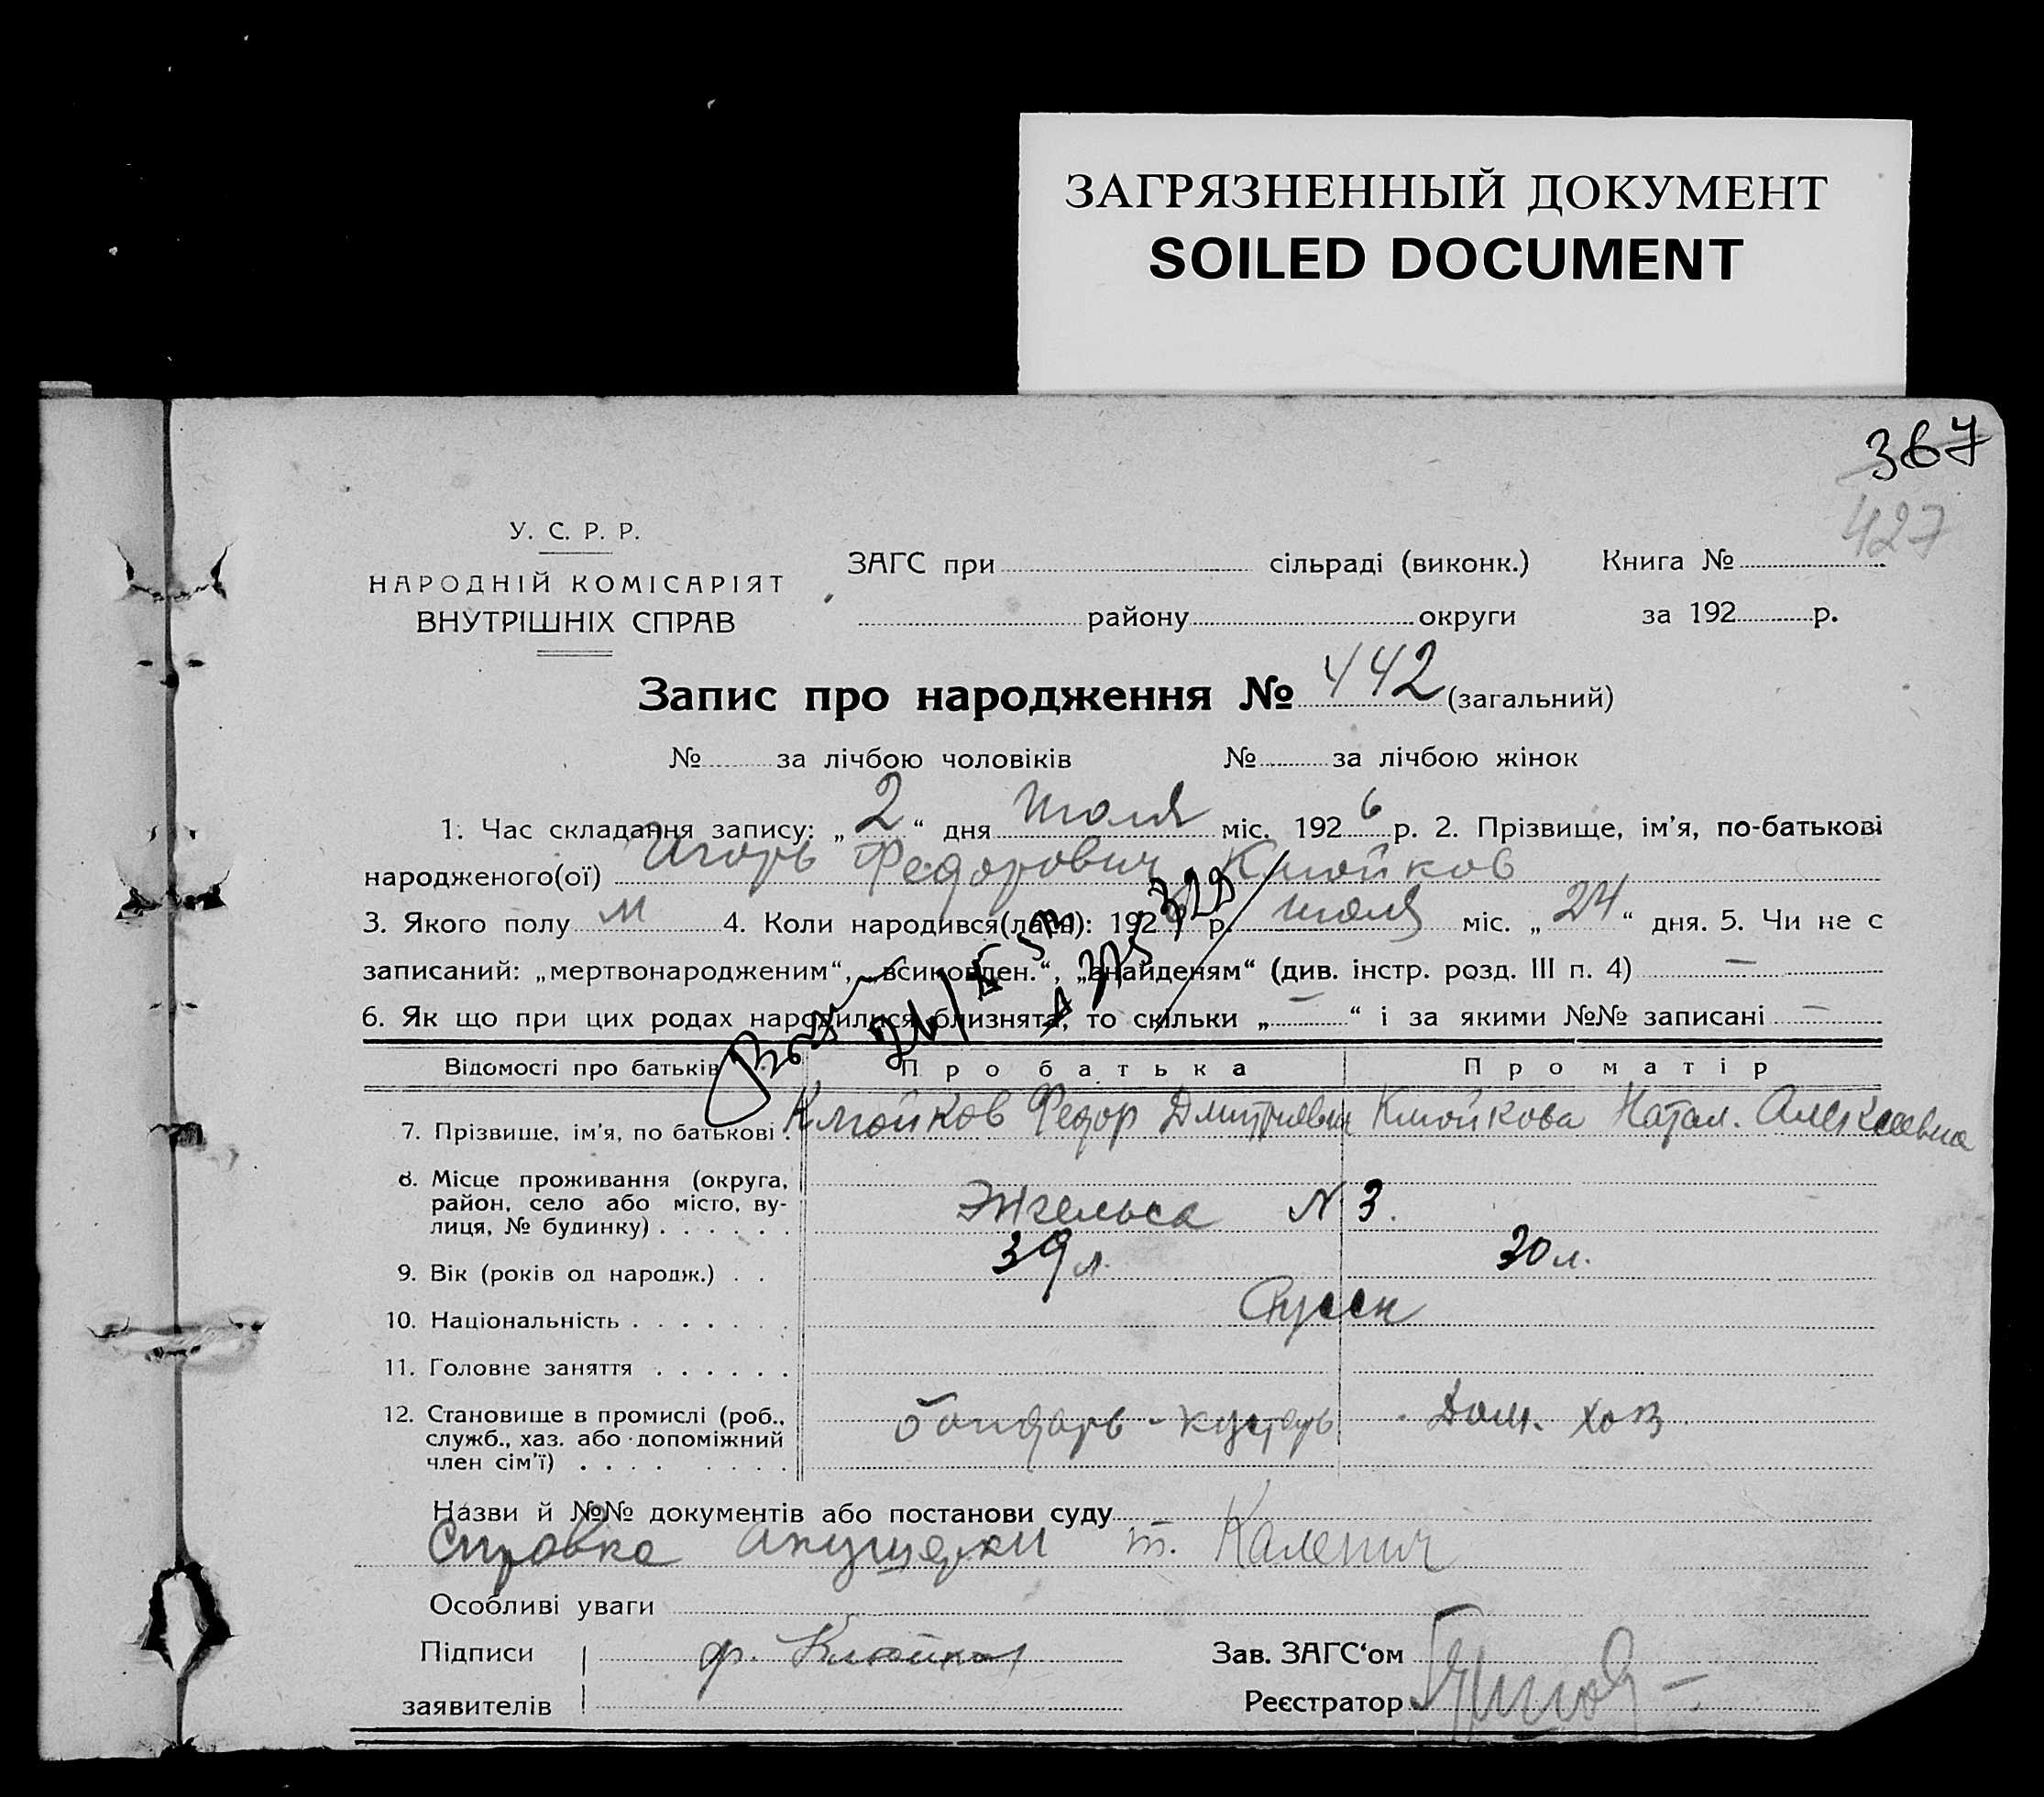 ЗАГРЯЗНЕННЫЙ ДОКУМЕНТ
SOILED DOCUMENT
367
427
У. С. Р. Р.
НАРОДНІЙ КОМІСАРІЯТ
ВНУТРІШНІХ СПРАВ
ЗАГС при сільраді (виконк.) Книга №
району округи за 192 р.
Запис про народження № 442 (загальний)
№ за лічбою чоловіків № за лічбою жінок
1. Час складання запису: „2“ дня июля міс. 1926 р. 2. Прізвище, ім’я, по-батькові
народженого(ої) Игорь Федорович Клюйков
3. Якого полу м 4. Коли народився(лася): 192 р. июля міс. „24“ дня. 5. Чи не є
записаний: „мертвонародженим“, „всиновлен.“, „знайденям“ (див. інстр. розд. III п. 4) —
6. Як що при цих родах народилися близнята, то скільки „—“ і за якими №№ записані —
Відомості про батьків Про батька Про матір
7. Прізвище, ім’я, по батькові . Клюйков Федор Дмитриевич Клюйкова Натал. Алексеевна
8. Місце проживання (округа,
район, село або місто, ву-
лиця, № будинку) . . . . . . Энгельса N 3.
9. Вік (років од народж.) . . 39 л. 30 л.
10. Національність . . . . . . . русск
11. Головне заняття . . . . . .
12. Становище в промислі (роб.,
служб., хаз. або допоміжний
член сім’ї) . . . . бондарь - кустарь Дом. хоз
Назви й №№ документів або постанови суду
Справка акушерки т.
Особливі уваги
Підписи ф. Клюйков Зав. ЗАГС‘ом
заявителів Реєстратор